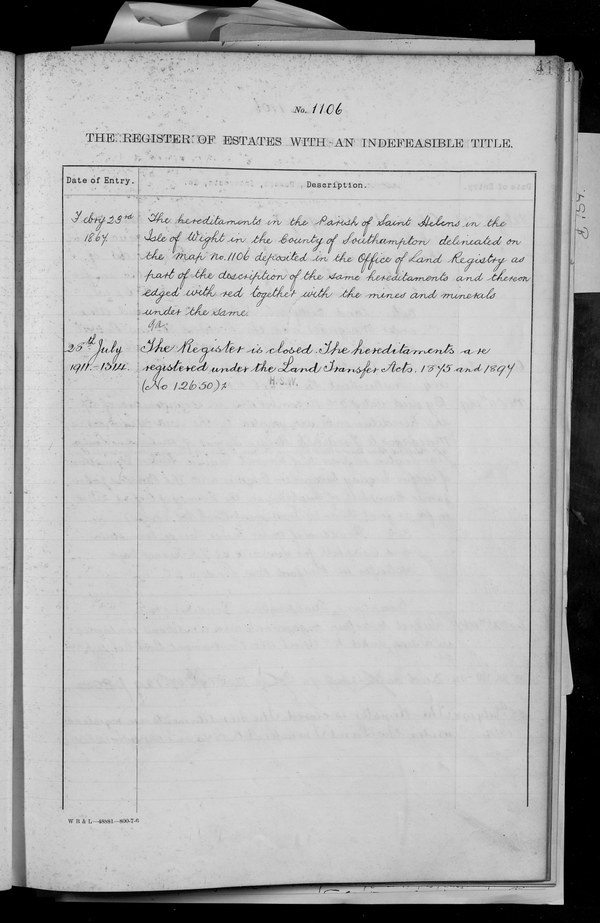 41
No. 1106
THE REGISTER OF ESTATES WITH AN INDEFEASIBLE TITLE.
Date of Entry.
Description.
Febry 23rd
1867.
The hereditaments in the Parish of Saint Helens in the
Isle of Wight in the County of Southampton delineated on
the Map No. 1106 deposited in the Office of Land Registry as
part of the description of the same hereditaments and thereon
edged with red together with the mines and minerals
under the same.
25th July
1911. 1314.
The Register is closed. The hereditaments are
registered under the Land Transfer Acts. 1875 and 1897
(No 12650)
H.S.W.
W B & L—48881—800-7-6